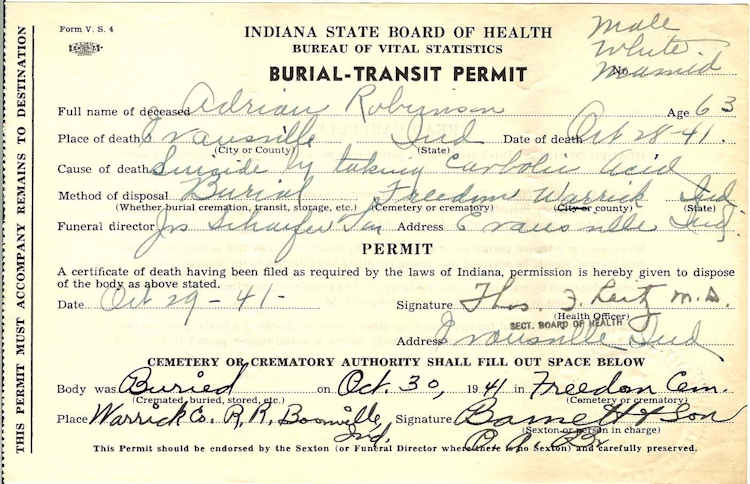 Form V. S. 4
INDIANA STATE BOARD OF HEALTH
BUREAU OF VITAL STATISTICS
BURIAL-TRANSIT PERMIT
Male
White
No. Married
Full name of deceased Adrian Robinson Age 63
Place of death Evansville Ind Date of death Oct 28-41.
(City or County) (State)
Cause of death Suicide by taking Carbolic Acid
Method of disposal Burial Freedom Warrick Ind
(Whether burial cremation, transit, storage, etc.) (Cemetery or crematory) (City or county) (State)
Funeral director Jos Schaefer Son Address Evansville Ind.
PERMIT
A certificate of death having been filed as required by the laws of Indiana, permission is hereby given to dispose
of the body as above stated.
Date Oct 29-41- Signature Thos. M.D.
(Health Officer)
SECT. BOARD OF HEALTH
Address Evansville Ind
CEMETERY OR CREMATORY AUTHORITY SHALL FILL OUT SPACE BELOW
Body was Buried on Oct. 30, 1941 in Freedom Cem.
(Cremated, buried, stored, etc.) (Cemetery or crematory)
Place Warrick Co. R.R. Boonville Ind. Signature Barnett & Son
(Sexton or person in charge)
This Permit should be endorsed by the Sexton (or Funeral Director where there is no Sexton) and carefully preserved.
THIS PERMIT MUST ACCOMPANY REMAINS TO DESTINATION